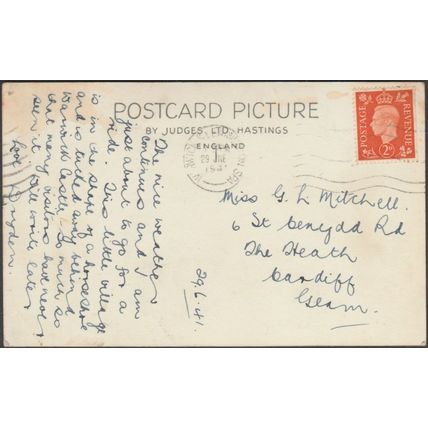 POSTCARD PICTURE
BY JUDGES LTD HASTINGS
ENGLAND
POSTAGE
REVENUE
2D
29 JNE
1941
29.6.41.
The nice weather
continues and I am
just about to go for a
ride. This little village
is in the shape of a horseshoe
and is tucked away behind
Warwick Castle so much so
that many visitors had never
seen it. Will write later
Love
Miss G. L. Mitchell.
6 St Benydd Rd
The Heath
Cardiff
Glam.